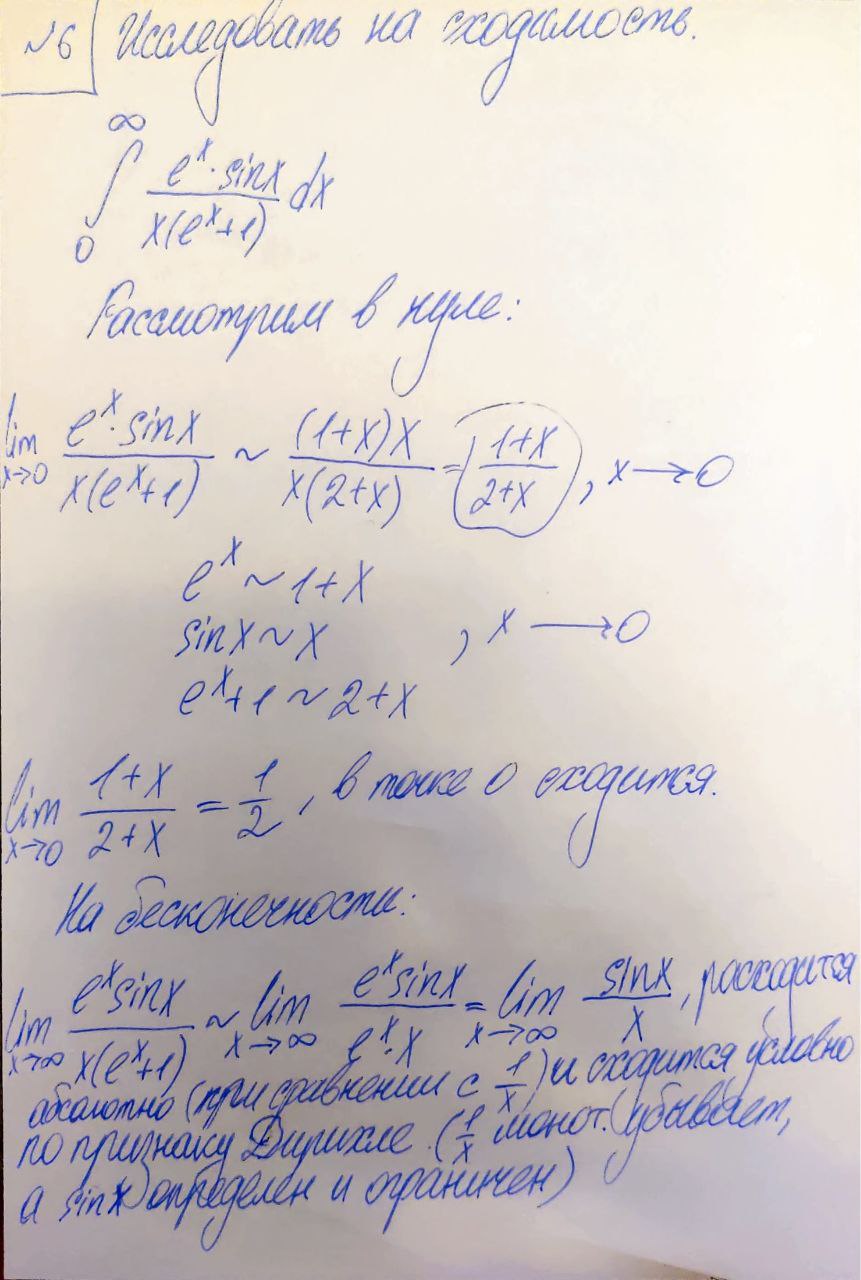 №6 Исследовать на сходимость.
∞
∫ e^x · sinx / x(e^x+1) dx
0
Рассмотрим в нуле:
lim x→0 e^x · sinx / x(e^x+1) ~ (1+x)x / x(2+x) = 1+x / 2+x , x → 0
e^x ~ 1+x
sinx ~ x , x → 0
e^x+1 ~ 2+x
lim x→0 1+x / 2+x = 1/2 , в точке 0 сходится.
На бесконечности:
lim x→∞ e^x sinx / x(e^x+1) ~ lim x→∞ e^x sinx / e^x · x = lim x→∞ sinx / x , расходится
абсолютно (при сравнении с 1/x) и сходится условно
по признаку Дирихле (1/x монот. (убывает,
а sinx) определен и ограничен)